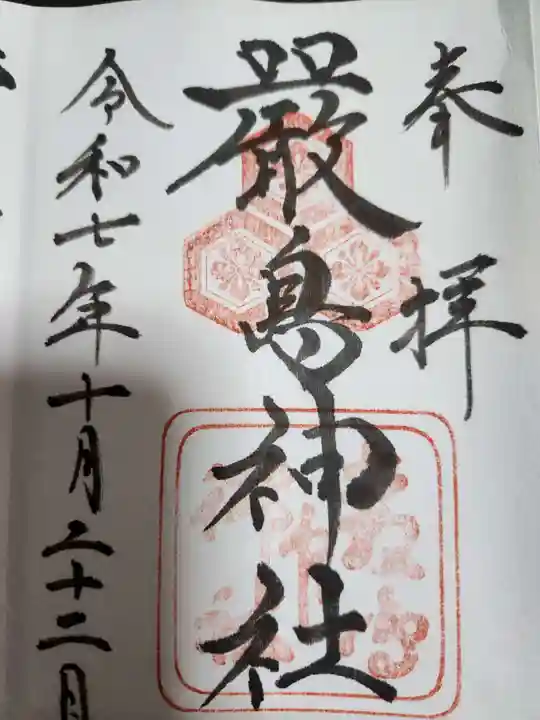 奉拝
嚴島神社
令和七年十月二十二月